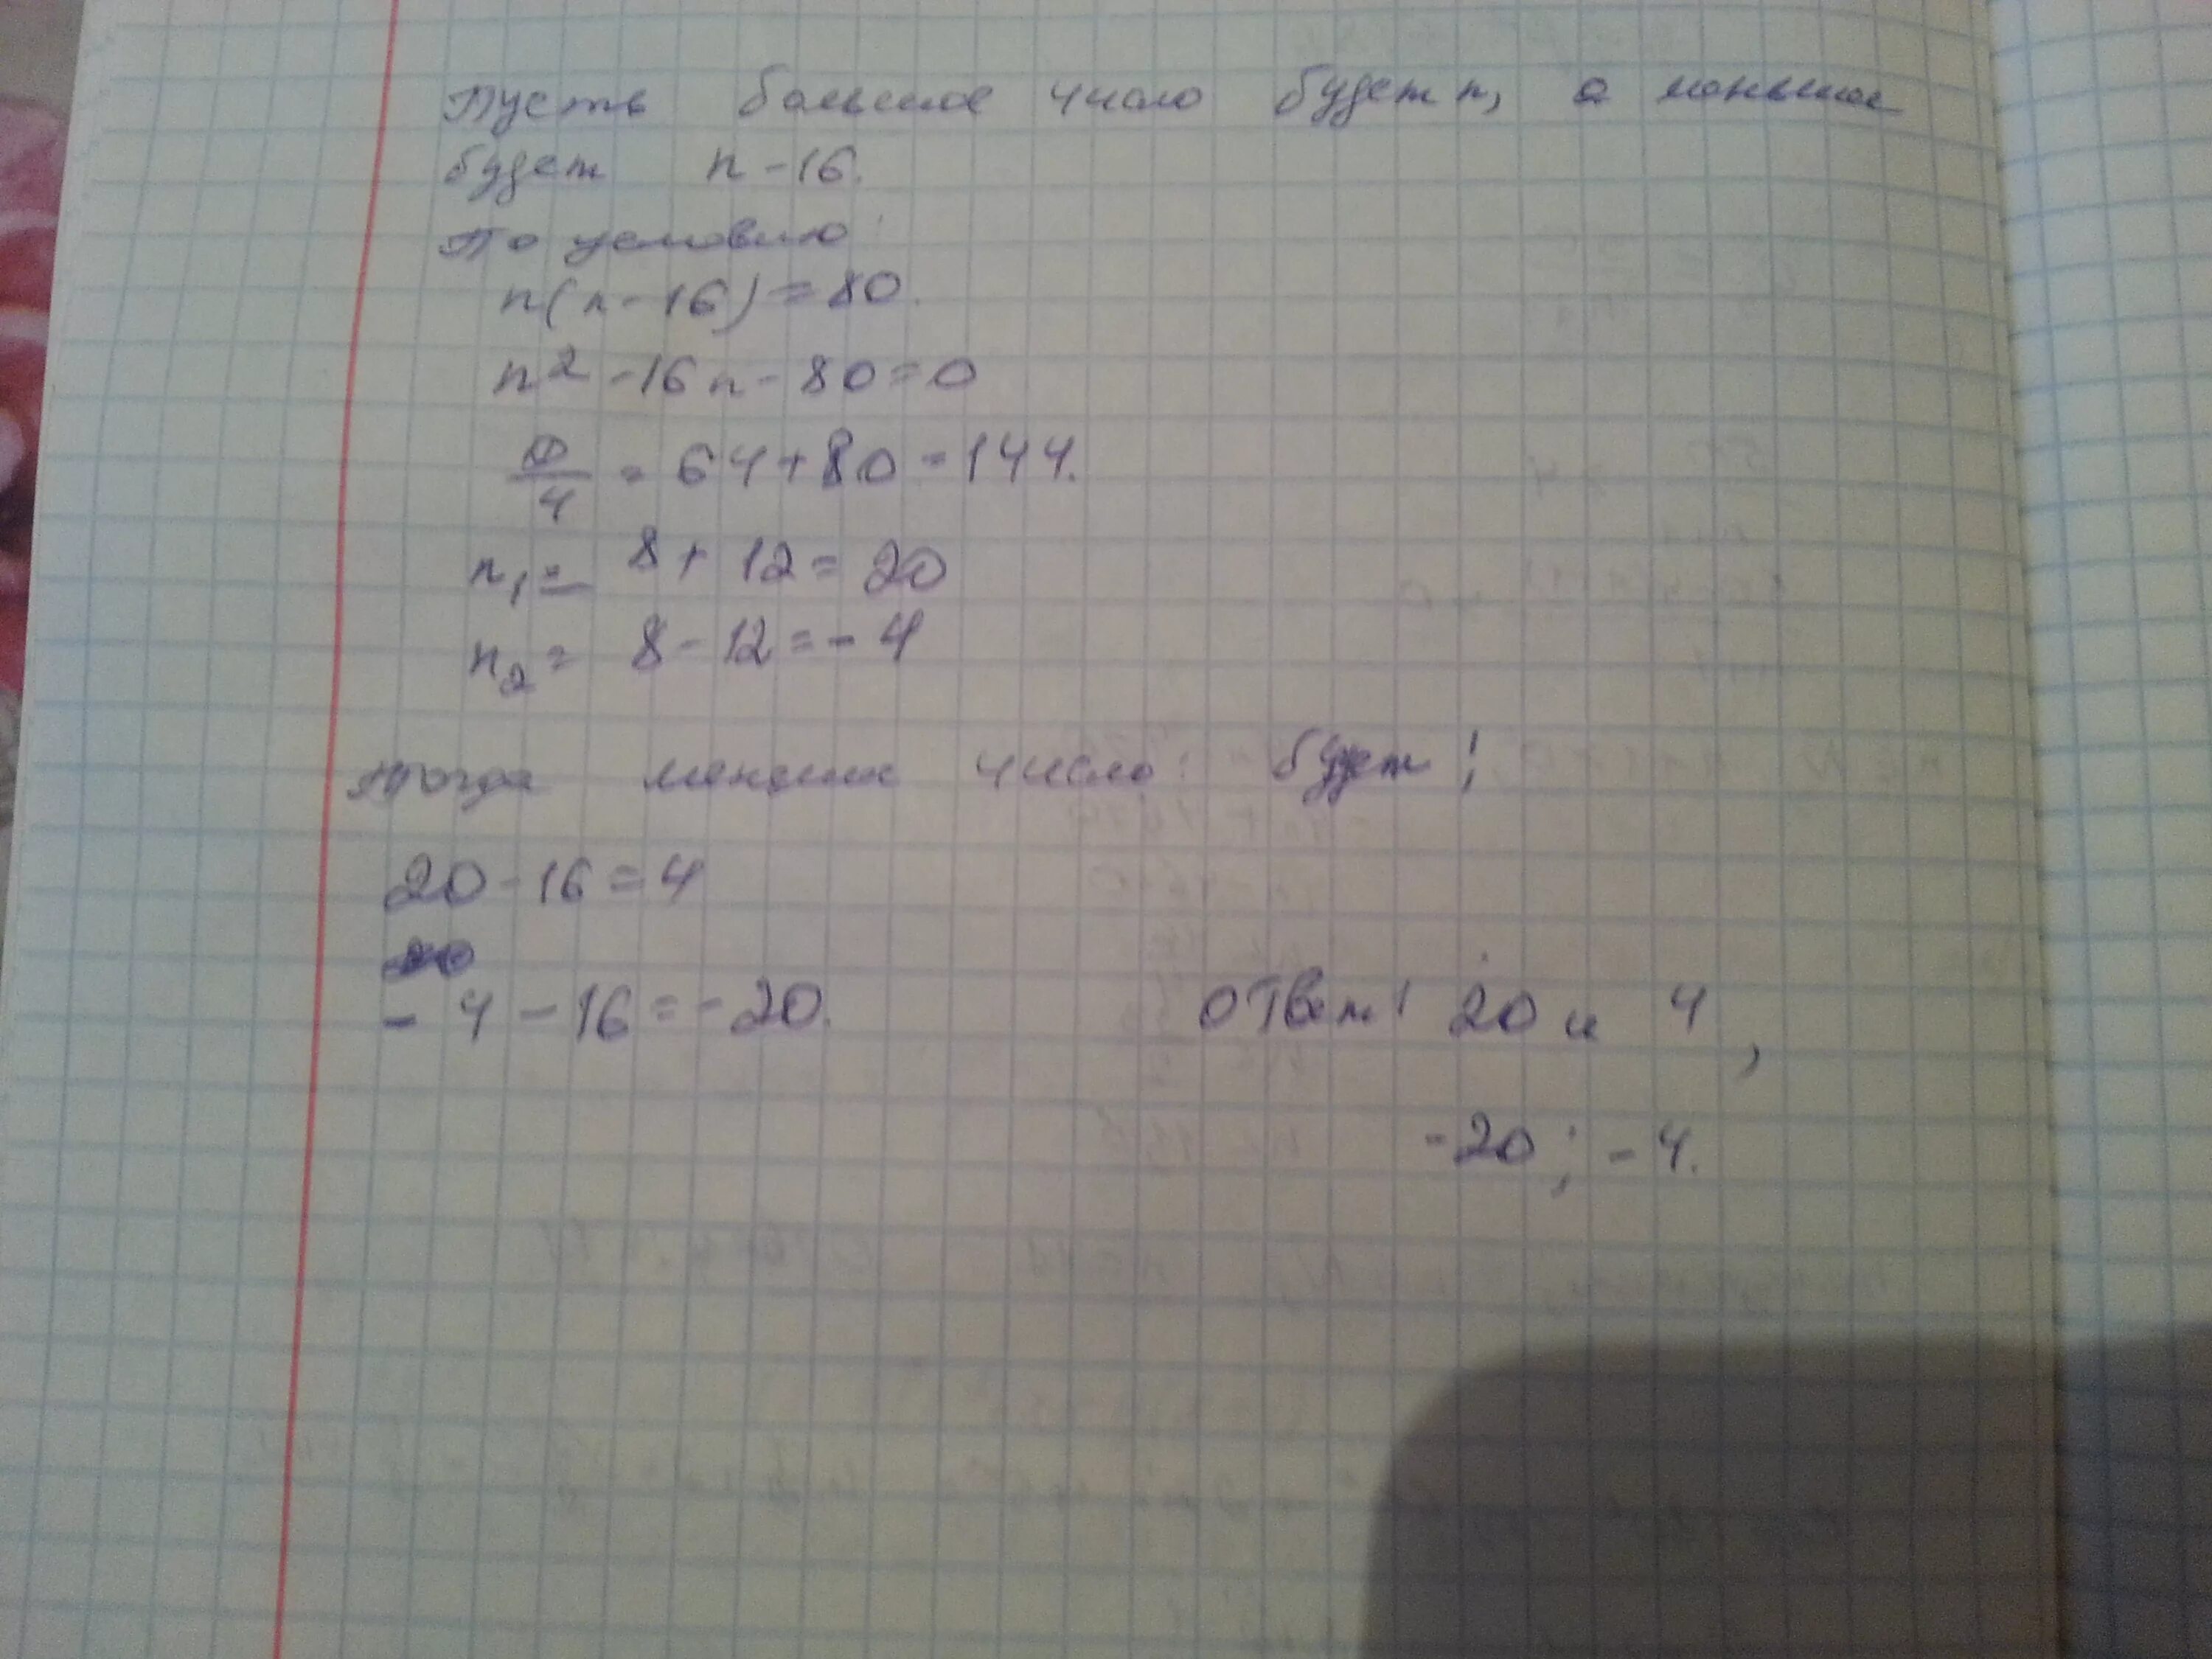 Пусть большое число будет n, а меньшее
будет n - 16.
По условию
n(n - 16) = 80.
n² - 16n - 80 = 0
D/4 = 64 + 80 = 144.
n₁ = 8 + 12 = 20
n₂ = 8 - 12 = - 4
Тогда меньшее число будет:
20 - 16 = 4
- 4 - 16 = - 20.
Ответ: 20 и 4,
-20; - 4.